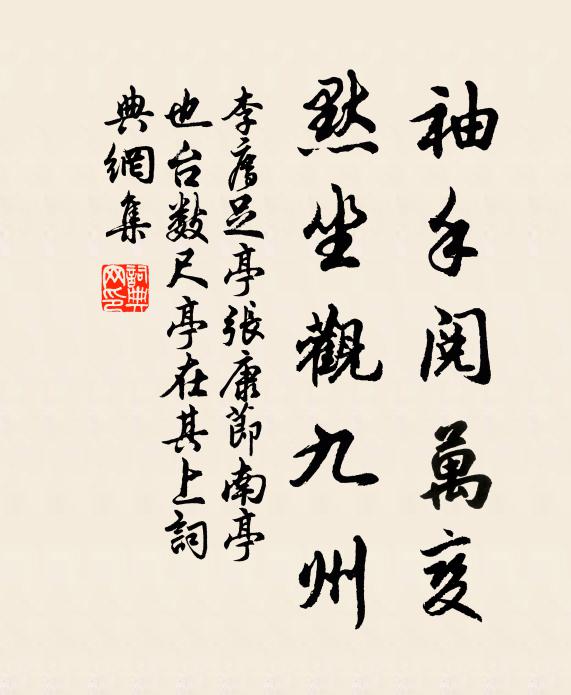 袖手閱萬变
默坐觀九州
李廌足亭張康節南亭
也台数尺亭在其上詞
典網集
詞典網印